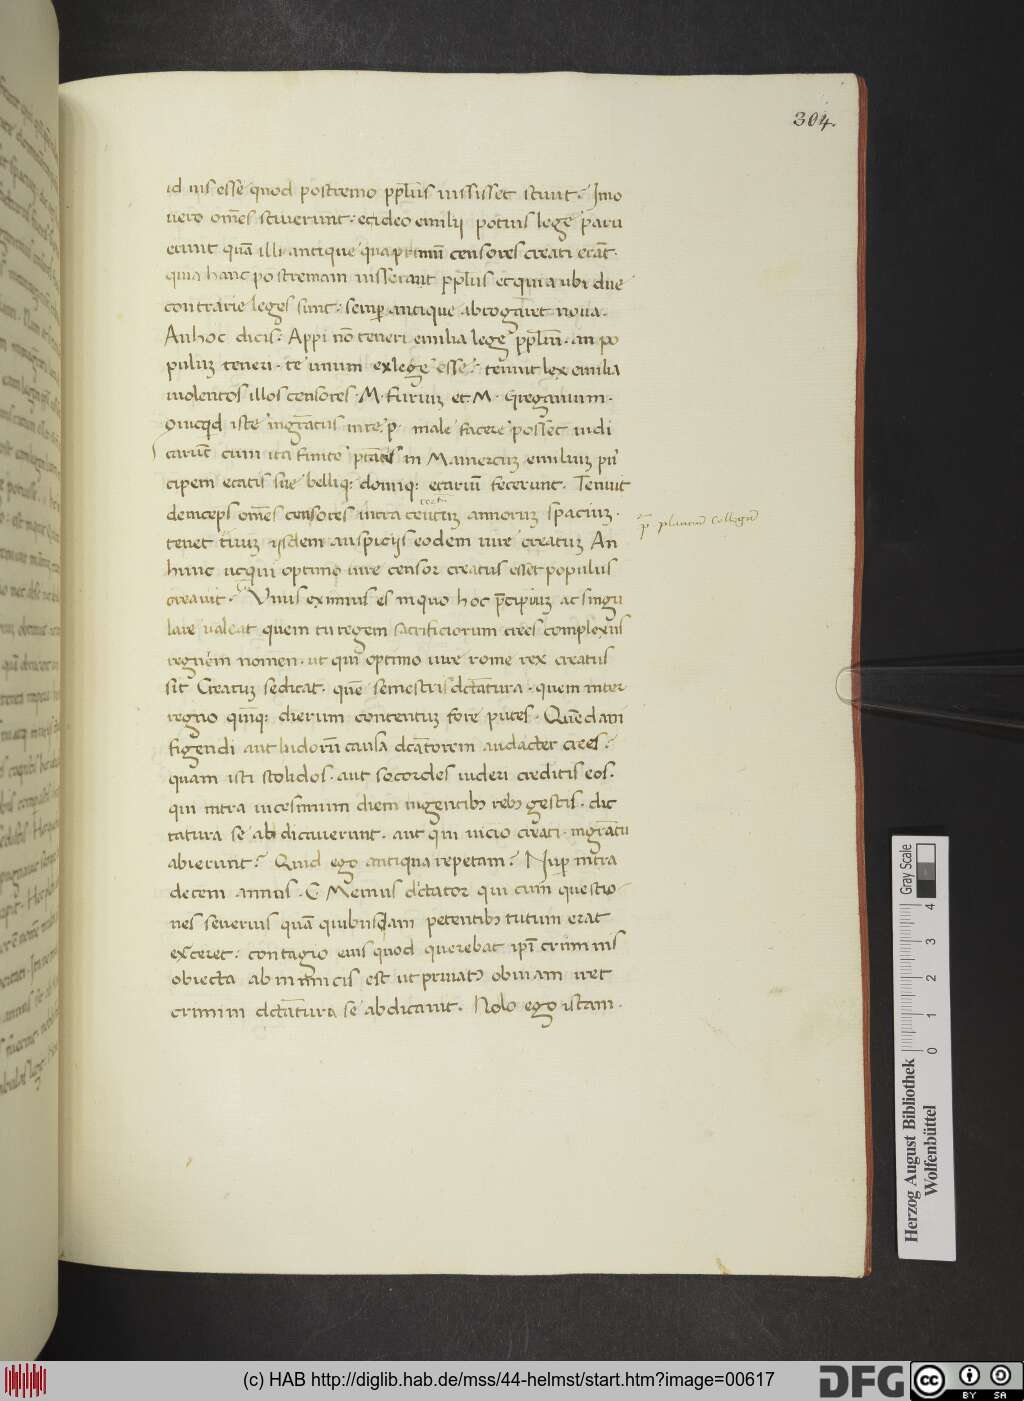 304.
id ius esse quod postremo pplus iussisset sciuit? Imo
uero oms sciuerunt: et ideo emilię potius lege paru
erunt quā illi antique qua primū censores creati erāt.
quia hanc postremam iusserant pplus et quia ubi due
contrarie leges sunt: semp antique abrogaret noua.
An hoc dicis: Appi nō teneri emilia lege pplm. an po
pulum teneri. te unum exlege esse? tenuit lex emilia
uiolentos illos censores. M. furium et M. Greganium.
Quicqd iste ingratus in re. p. male facere posset indi
carut cum ira finite ptatis in Mamercum emilium pn
cipem etatis sue belliq; domiq; erariū fecerunt. Tenuit
deinceps oms censores intra centum annorum spacium.
tenet tuum p. plautium collegam
iisdem auspiciis eodem iure creatum An
hunc ut qui optimo iure censor creatus esset populus
creauit? Unus eximius es in quo hoc precipuum ac singu
lare ualeat quem tu regem sacrificiorum crees complexus
regnum nomen. ut qui optimo iure rome rex creatus
sit Creatum se dicat. quē semestris dictatura. quem inter
regno quinq; dierum contentum fore putes. Quē clavi
figendi aut ludorū causa dictatorem audacter crees?
quam isti stolidos. aut socordes uideri creditis eos.
qui intra uicesimum diem ingentib; reb; gestis. dic
tatura se abdicuerunt. aut qui uicio creati. magratu
abierunt? Quid ego antiqua repetam? Nup intra
decem annos. C Menius dictator qui cum questio
nes seuerius quā quibusdam petentib; tutum erat
exceret: contagio eius quod querebat ipi criminis
obiecta ab inimicis est ut priuatus obuiam iret
crimini dictatura se abdicauit. Nolo ego istam.
Gray Scale
0 1 2 3 4
Herzog August Bibliothek
Wolfenbüttel
(c) HAB http://diglib.hab.de/mss/44-helmst/start.htm?image=00617
DFG
cc BY SA